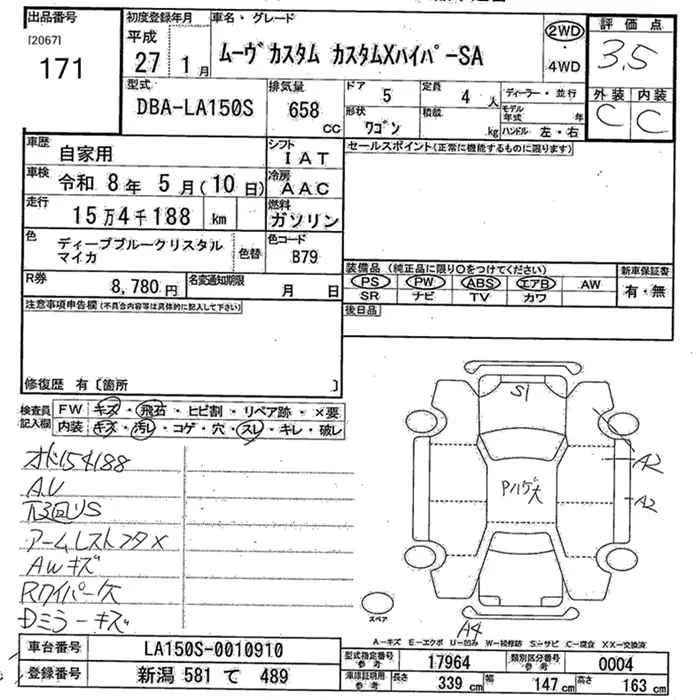 出品番号
[2067]
171
初度登録年月
平成
27 1月
車名・グレード
ムーヴカスタム カスタムXハイパーSA
2WD
・
4WD
評価点
3.5
外装 内装
C C
型式
DBA-LA150S
排気量
658
CC
ドア
5
定員
4人
形状
ワゴン
積載
kg
ディーラー・並行
モデル年式 年
ハンドル 左・右
車歴
自家用
シフト
IAT
車検
令和 8年 5月(10日)
冷房
AAC
走行
15万4千188 km
燃料
ガソリン
色
ディープブルークリスタル
マイカ
色替
色コード
B79
R券
8,780円
名変通知期限
月 日
セールスポイント(正常に機能するものに限ります)
装備品 (純正品に限り○をつけてください)
新車保証書
PS PW ABS エアB AW
有・無
SR ナビ TV カワ
後日品
注意事項申告欄(不具合内容等は具体的に記入して下さい)
修復歴 有〔箇所 〕
検査員
記入欄
FW キズ・飛石・ヒビ割・リペア跡・×要
内装 キズ・汚レ・コゲ・穴・スレ・キレ・破レ
オド154188
A.U
下回りS
アームレストフタ×
AWキズ
Rワイパー欠
Dミラーキズ
S1
Pハゲ大
A2
A2
A4
スペア
A-キズ E-エクボ U-凹み W-補修跡 S-サビ C-腐食 XX-交換済
車台番号
LA150S-0010910
登録番号
新潟 581 て 489
型式指定番号
参考
17964
類別区分番号
参考
0004
車庫証明用
参考
長さ 339 cm 幅 147 cm 高さ 163 cm